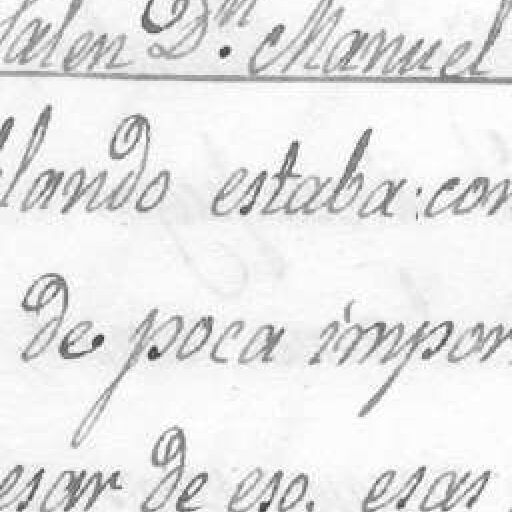 Salen Dn. Manuel
llando estaba: con
de poca impor
esar de eso. esas